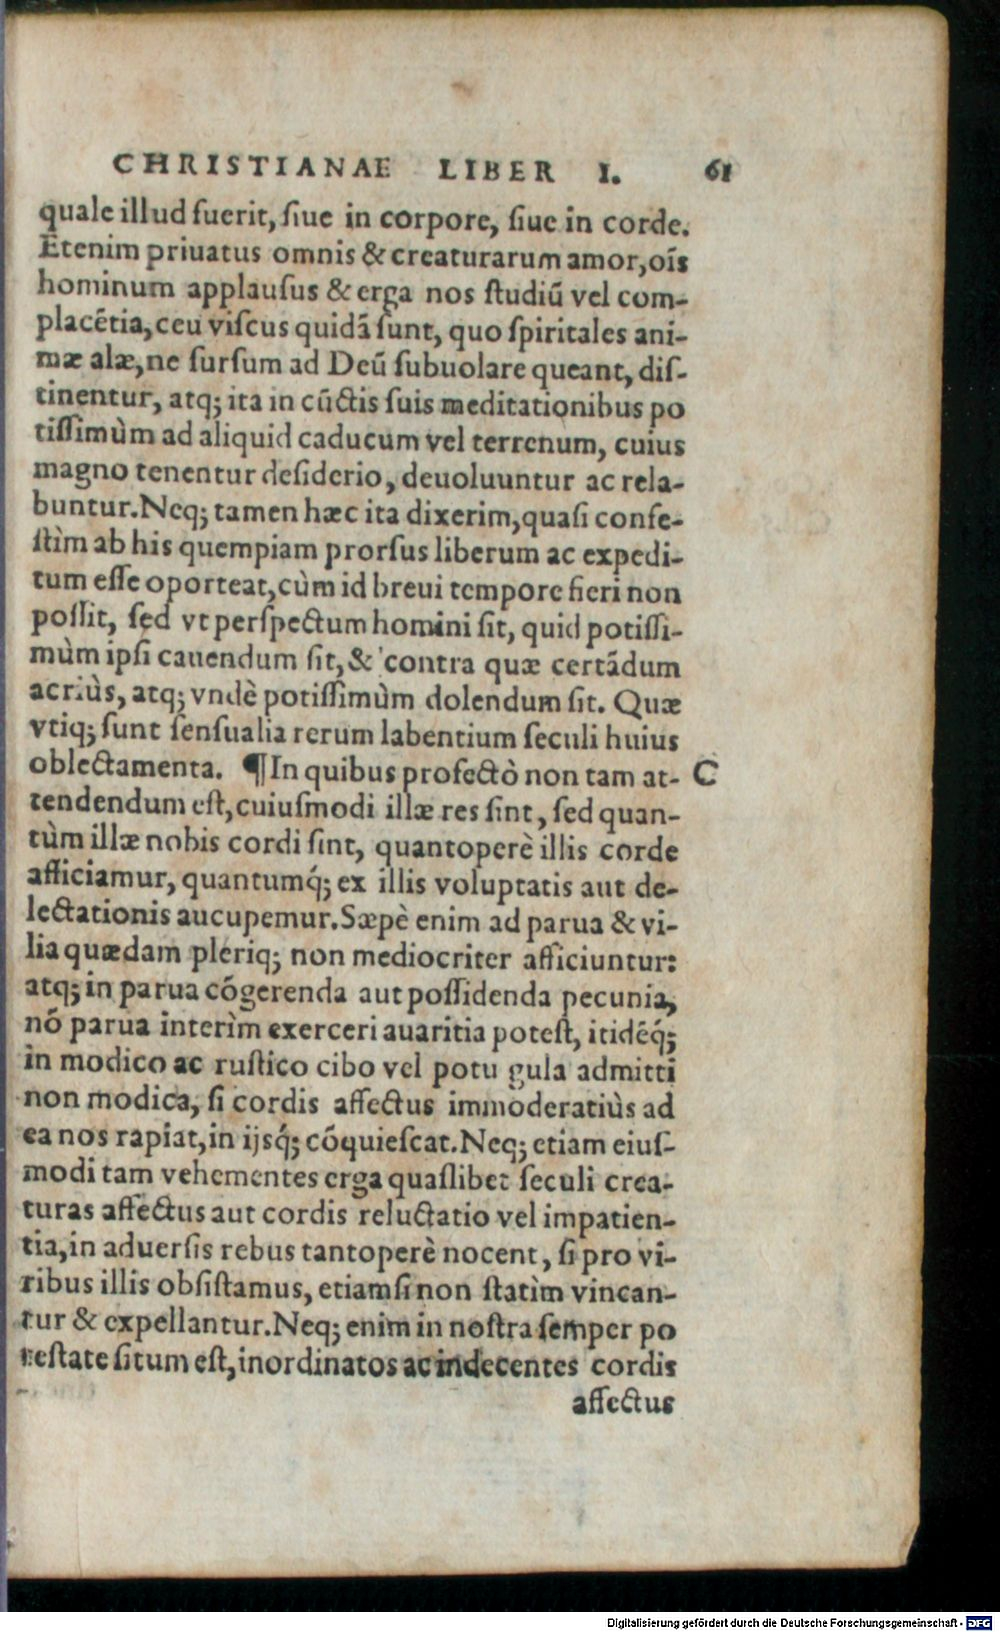 CHRISTIANAE LIBER I. 61
quale illud fuerit, siue in corpore, siue in corde.
Etenim priuatus omnis & creaturarum amor, oı̃s
hominum applausus & erga nos studiũ vel com-
placẽtia, ceu viscus quidã sunt, quo spiritales ani-
mæ alæ, ne sursum ad Deũ subuolare queant, dis-
tinentur, atq; ita in cũctis suis meditationibus po
tissimùm ad aliquid caducum vel terrenum, cuius
magno tenentur desiderio, deuoluuntur ac rela-
buntur. Neq; tamen hæc ita dixerim, quasi confe-
stìm ab his quempiam prorsus liberum ac expedi-
tum esse oporteat, cùm id breui tempore fieri non
possit, sed vt perspectum homini sit, quid potissi-
mùm ipsi cauendum sit, & contra quæ certãdum
acriùs, atq; vndè potissimùm dolendum sit. Quæ
vtiq; sunt sensualia rerum labentium seculi huius
oblectamenta. ¶ In quibus profectò non tam at- C
tendendum est, cuiusmodi illæ res sint, sed quan-
tùm illæ nobis cordi sint, quantoperè illis corde
afficiamur, quantumq́; ex illis voluptatis aut de-
lectationis aucupemur. Sæpè enim ad parua & vi-
lia quædam pleriq; non mediocriter afficiuntur:
atq; in parua cõgerenda aut possidenda pecunia,
nõ parua interìm exerceri auaritia potest, itidẽq́;
in modico ac rustico cibo vel potu gula admitti
non modica, si cordis affectus immoderatiùs ad
ea nos rapiat, in ijsq́; cõquiescat. Neq; etiam eius-
modi tam vehementes erga quaslibet seculi crea-
turas affectus aut cordis reluctatio vel impatien-
tia, in aduersis rebus tantoperè nocent, si pro vi-
ribus illis obsistamus, etiamsi non statìm vincan-
tur & expellantur. Neq; enim in nostra semper po
testate situm est, inordinatos ac indecentes cordis
affectus
Digitalisierung gefördert durch die Deutsche Forschungsgemeinschaft - DFG